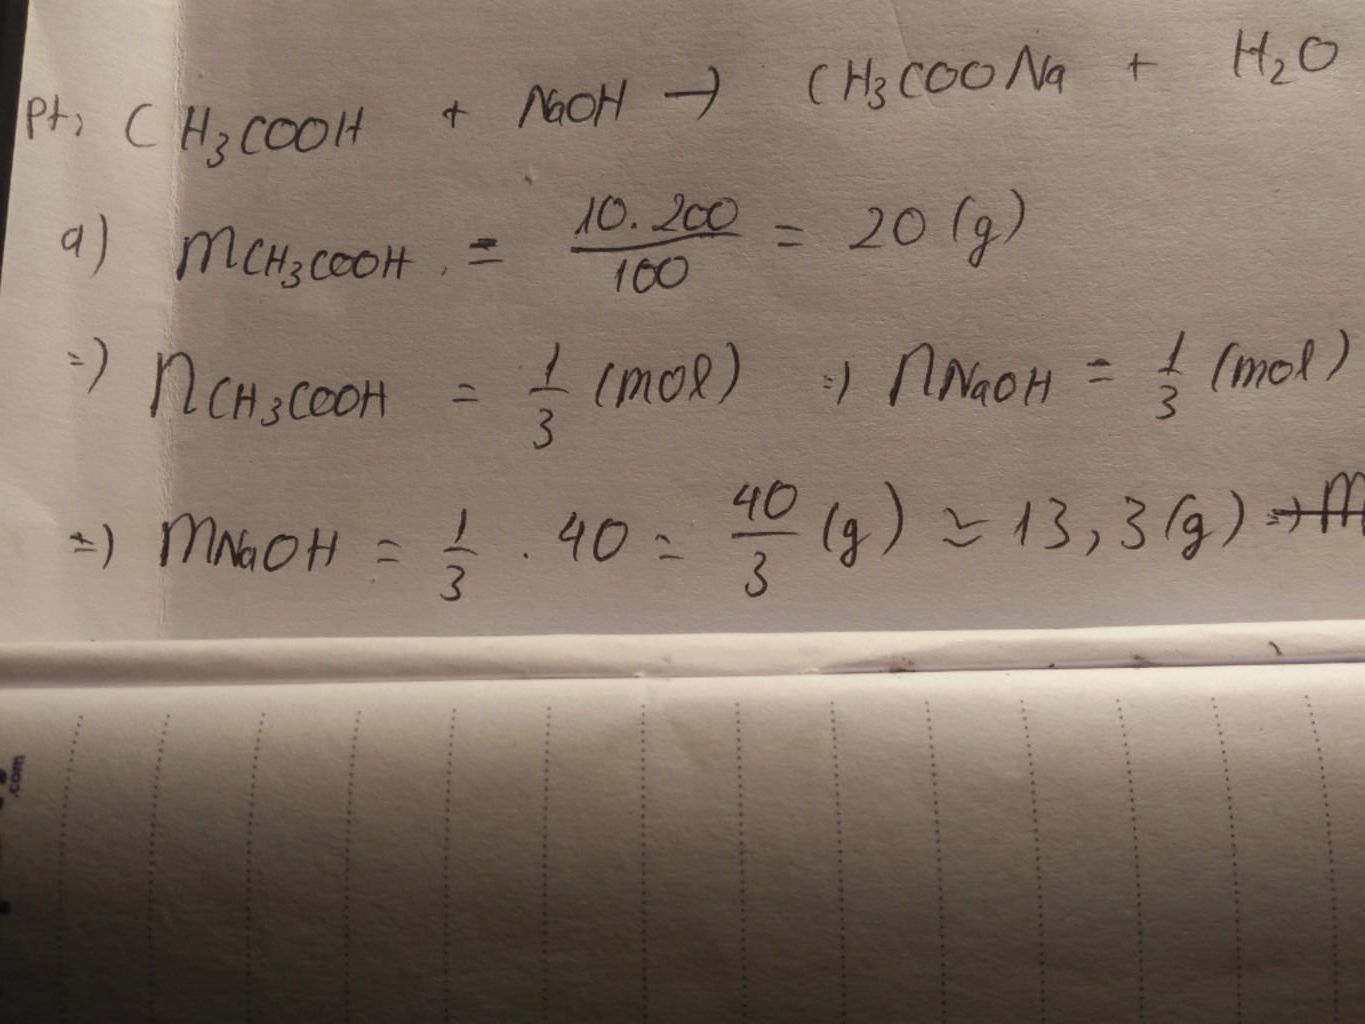 Pt, CH3COOH + NaOH → CH3COONa + H2O
a) mCH3COOH = 10.200/100 = 20 (g)
=) nCH3COOH = 1/3 (mol) =) nNaOH = 1/3 (mol)
=) mNaOH = 1/3 . 40 = 40/3 (g) ≃ 13,3 (g) =) m
.com